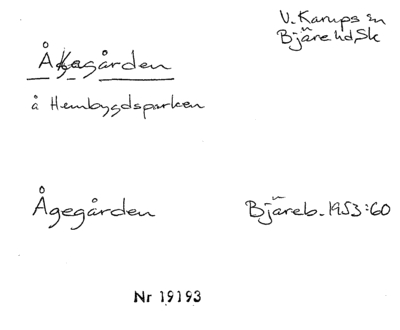 V. Karups sn
Bjäre hd, Sk
Ågegården
å Hembygdsparken
Ågegården
Bjäreb. 1953:60
Nr 19193